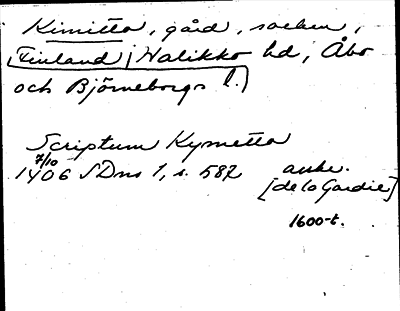 Kimitto, gård, socken,
(Finland, Halikko hd, Åbo
och Björneborgs l.)
Scriptum Kymetto
7/10
1406 SDns 1, s. 587 avskr.
[de la Gardie]
1600-t.